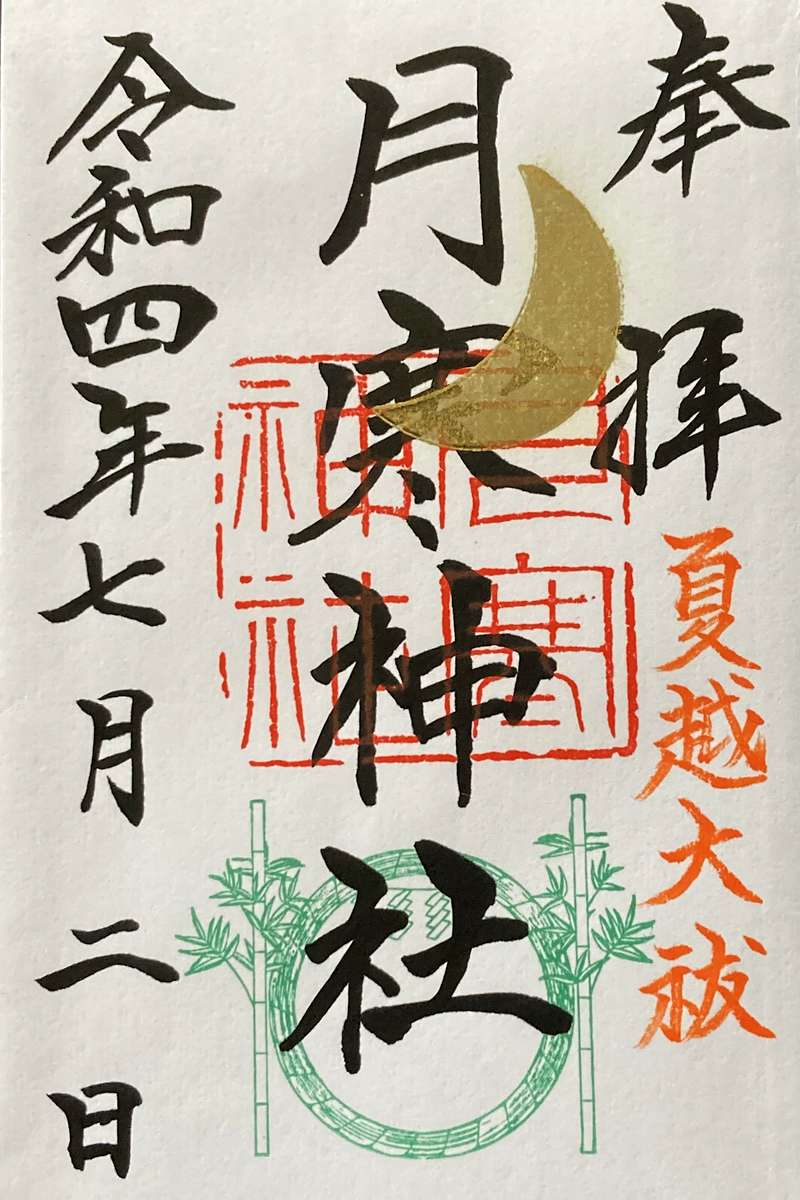 奉拝
夏越大祓
月寒神社
月寒
神社
令和四年七月二日